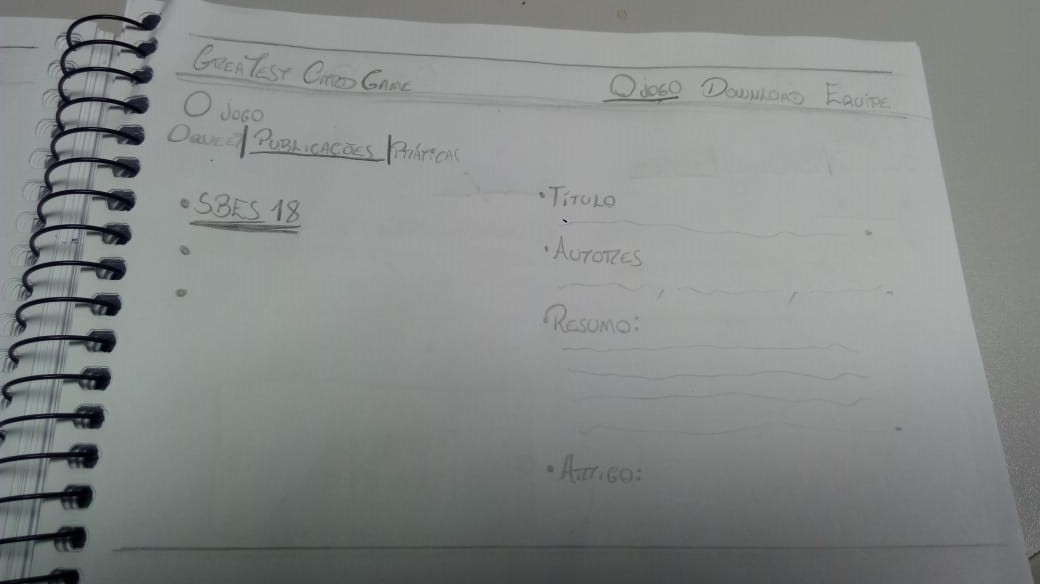 GREATEST CARD GAME O JOGO DOWNLOAD EQUIPE
O JOGO
O QUE É? | PUBLICAÇÕES | PRÁTICAS
• SBES 18
•
•
• TÍTULO
• AUTORES
• RESUMO:
• ARTIGO: